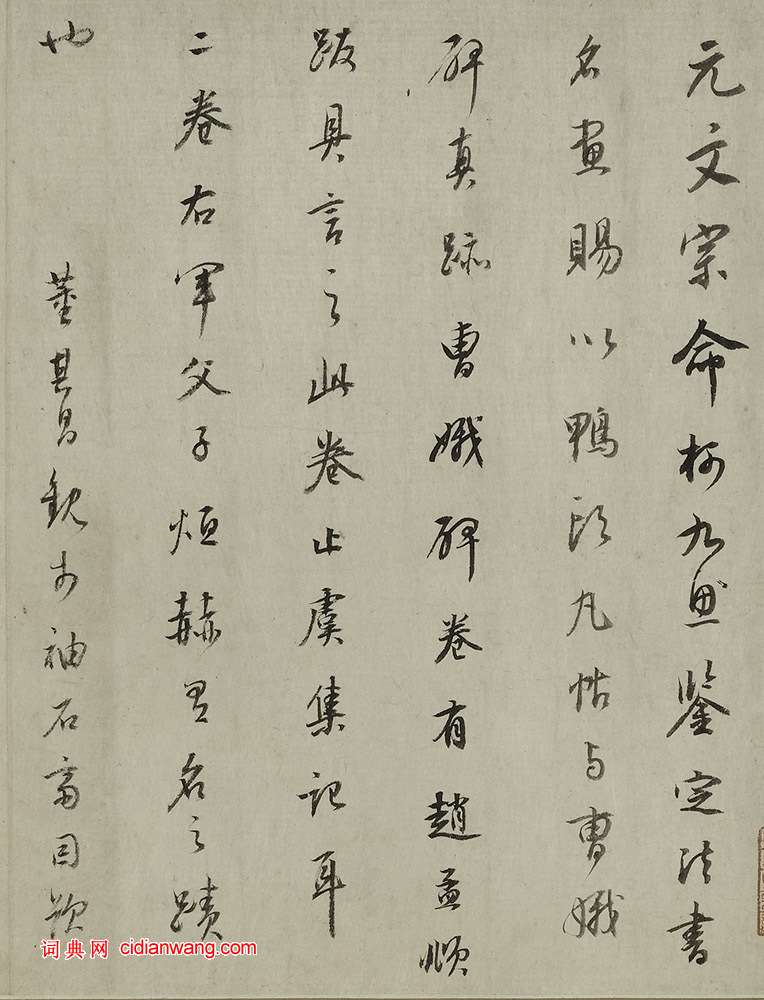 元文宗命柯九思鑒定法書
名畫賜以鴨頭丸帖与曹娥
碑真跡曹娥碑卷有趙孟頫
跋具言之此卷止虞集記耳
二卷右軍父子烜赫有名之蹟
也
董其昌觀於袖石齋因題
词典网 cidianwang.com